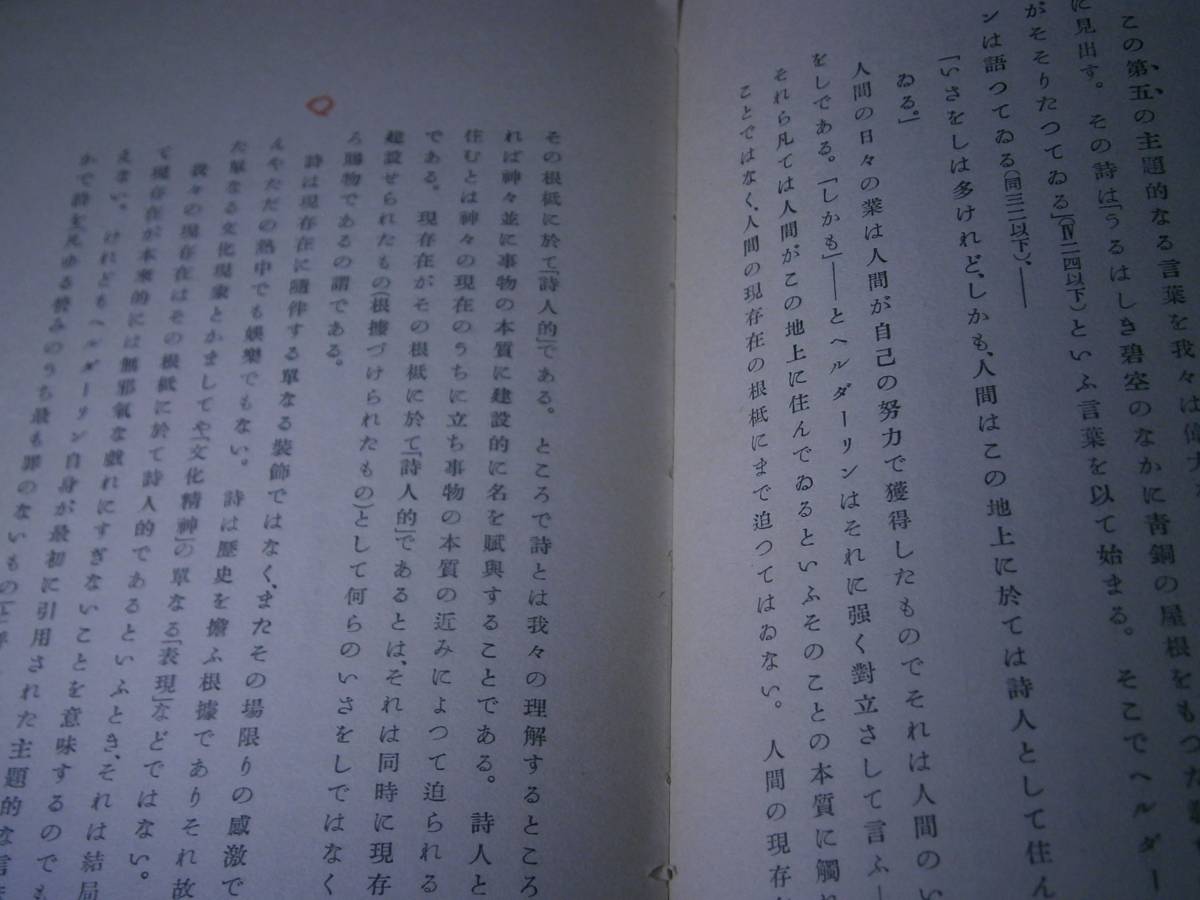 この第五の主題的なる言葉を我々は偉大
に見出す。その詩は「うるはしき碧空のなかに靑銅の屋根をもつた
がそそりたつてゐる」(Ⅳ二四以下)といふ言葉を以て始まる。そこでヘルダー
ンは語つてゐる(同三二以下)、――
「いさをしは多けれど、しかも、人間はこの地上に於ては詩人として住ん
ゐる。」
人間の日々の業は人間が自己の努力で獲得したものでそれは人間のい
をしである。「しかも」――とヘルダーリンはそれに强く對立さして言ふ―
それら凡ては人間がこの地上に住んでゐるといふそのことの本質に觸れ
ことではなく、人間の現存在の根柢にまで迫つてはゐない。人間の現存
その根柢に於て「詩人的」である。ところで詩とは我々の理解するところ
れば神々並に事物の本質に建設的に名を賦與することである。詩人と
住むとは神々の現在のうちに立ち事物の本質の近みによつて迫られる
である。現存在がその根柢に於て「詩人的」であるとは、それは同時に現存
建設せられたもの(根據づけられたもの)として何らのいさをしではなく
ろ賜物であるの謂である。
詩は現存在に隨伴する單なる裝飾ではなく、またその場限りの感激で
えやただの熱中でも娛樂でもない。詩は歷史を擔ふ根據でありそれ故
た單なる文化現象とかましてや「文化精神」の單なる「表現」などではない。
我々の現存在はその根柢に於て詩人的であるといふとき、それは結局
て現存在が本來的には無邪氣な戲れにすぎないことを意味するのでも
えない。けれどもヘルダーリン自身が最初に引用された主題的な言
かで詩を凡ゆる營みのうち最も罪のないもの」と